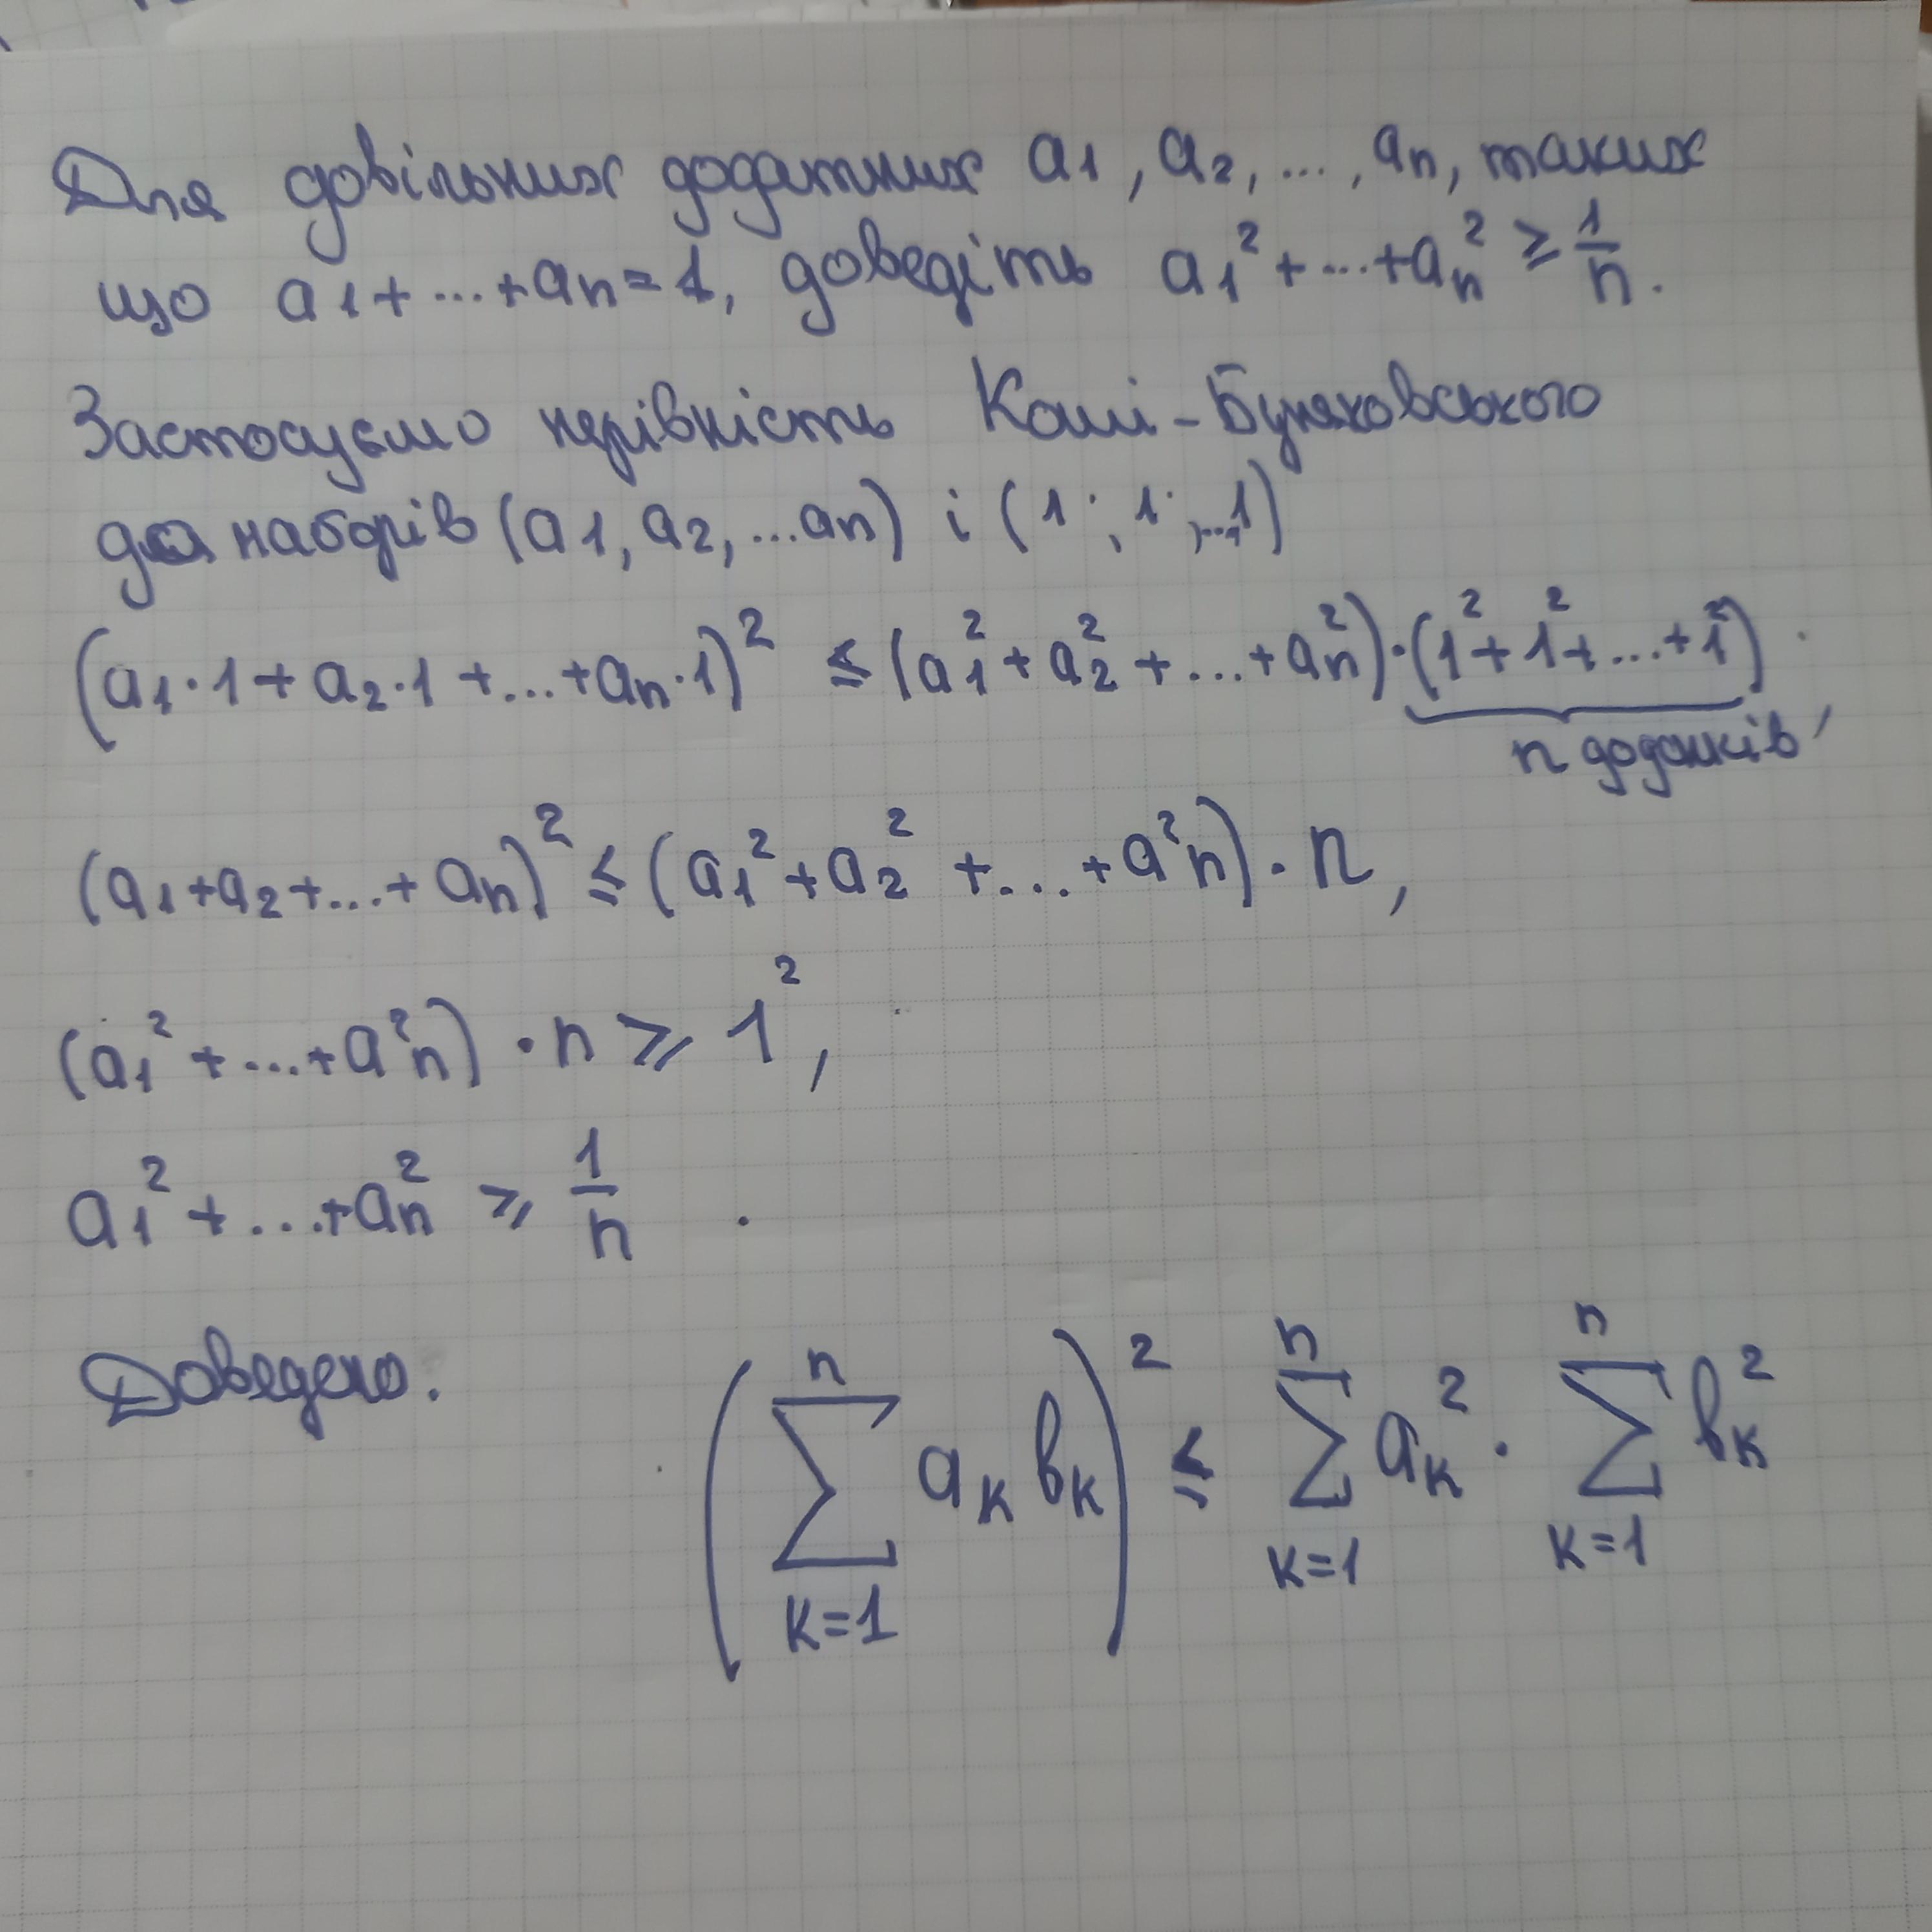 Для довільних додатних a₁, a₂, ..., aₙ, таких
що a₁ + ... + aₙ = 1, доведіть a₁² + ... + aₙ² ≥ 1/n.
Застосуємо нерівність Коші-Буняковського
для наборів (a₁, a₂, ... aₙ) і (1; 1; ...; 1)
(a₁·1 + a₂·1 + ... + aₙ·1)² ≤ (a₁² + a₂² + ... + aₙ²)·(1² + 1² + ... + 1²)
n доданків,
(a₁ + a₂ + ... + aₙ)² ≤ (a₁² + a₂² + ... + a²ₙ)·n,
(a₁² + ... + a²ₙ)·n ≥ 1²,
a₁² + ... + aₙ² ≥ 1/n.
Доведено.
(∑_{k=1}^{n} aₖ bₖ)² ≤ ∑_{k=1}^{n} aₖ² · ∑_{k=1}^{n} bₖ²